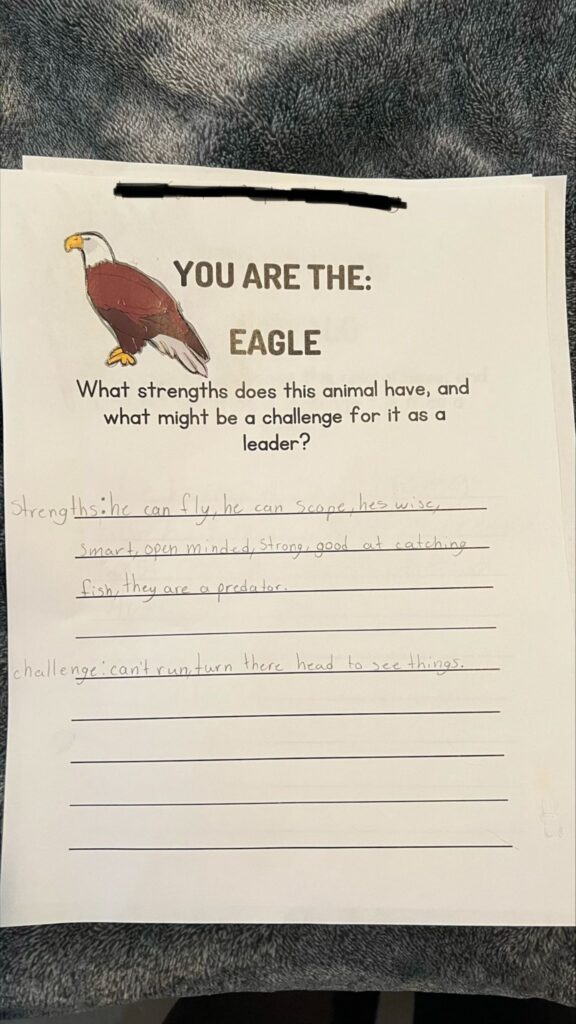 YOU ARE THE:
EAGLE
What strengths does this animal have, and
what might be a challenge for it as a
leader?
Strengths: he can fly, he can scope, hes wise,
smart, open minded, strong, good at catching
fish, they are a predator.
challenge: can't run, turn there head to see things.